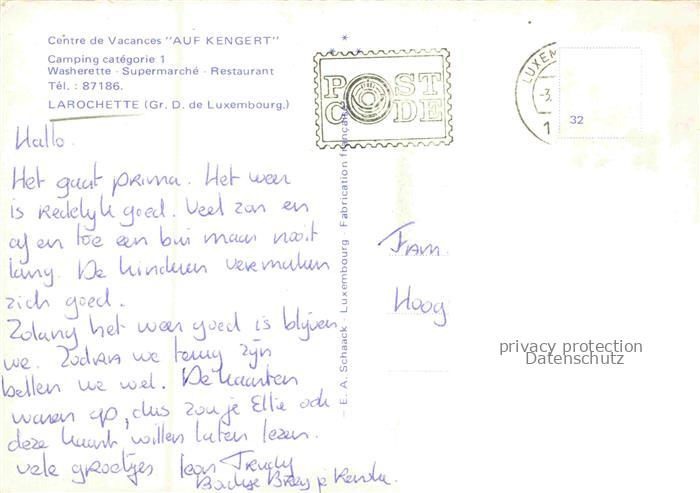 Centre de Vacances "AUF KENGERT"
Camping catégorie 1
Washerette - Supermarché - Restaurant
Tél. : 87186.
LAROCHETTE (Gr. D. de Luxembourg.)
Hallo.
Het gaat prima. Het weer
is redelijk goed. Veel zon en
af en toe een bui maar nooit
lang. De kinderen vermaken
zich goed.
Zolang het weer goed is blijven
we. Zodra we terug zijn
bellen we wel. De kaarten
waren op, dus zou je Ellie ook
deze kaart willen laten lezen.
vele groetjes Trendy
POST
CODE
E. A. Schaack - Luxembourg - Fabrication française
LUXEM
-3.
1
32
Fam.
Hoog
privacy protection
Datenschutz